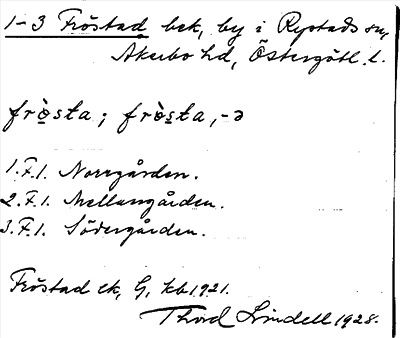 1-3 Fröstad bek, by i Rystads sn,
Åkerbo hd, Östergötl. l.
frö̀sta ; frö̀sta, -ə
1. F. 1. Norrgården.
2. F. 1. Mellangården.
3. F. 1. Södergården.
Fröstad ek, G, kb 1921.
Thord Lindell 1928.